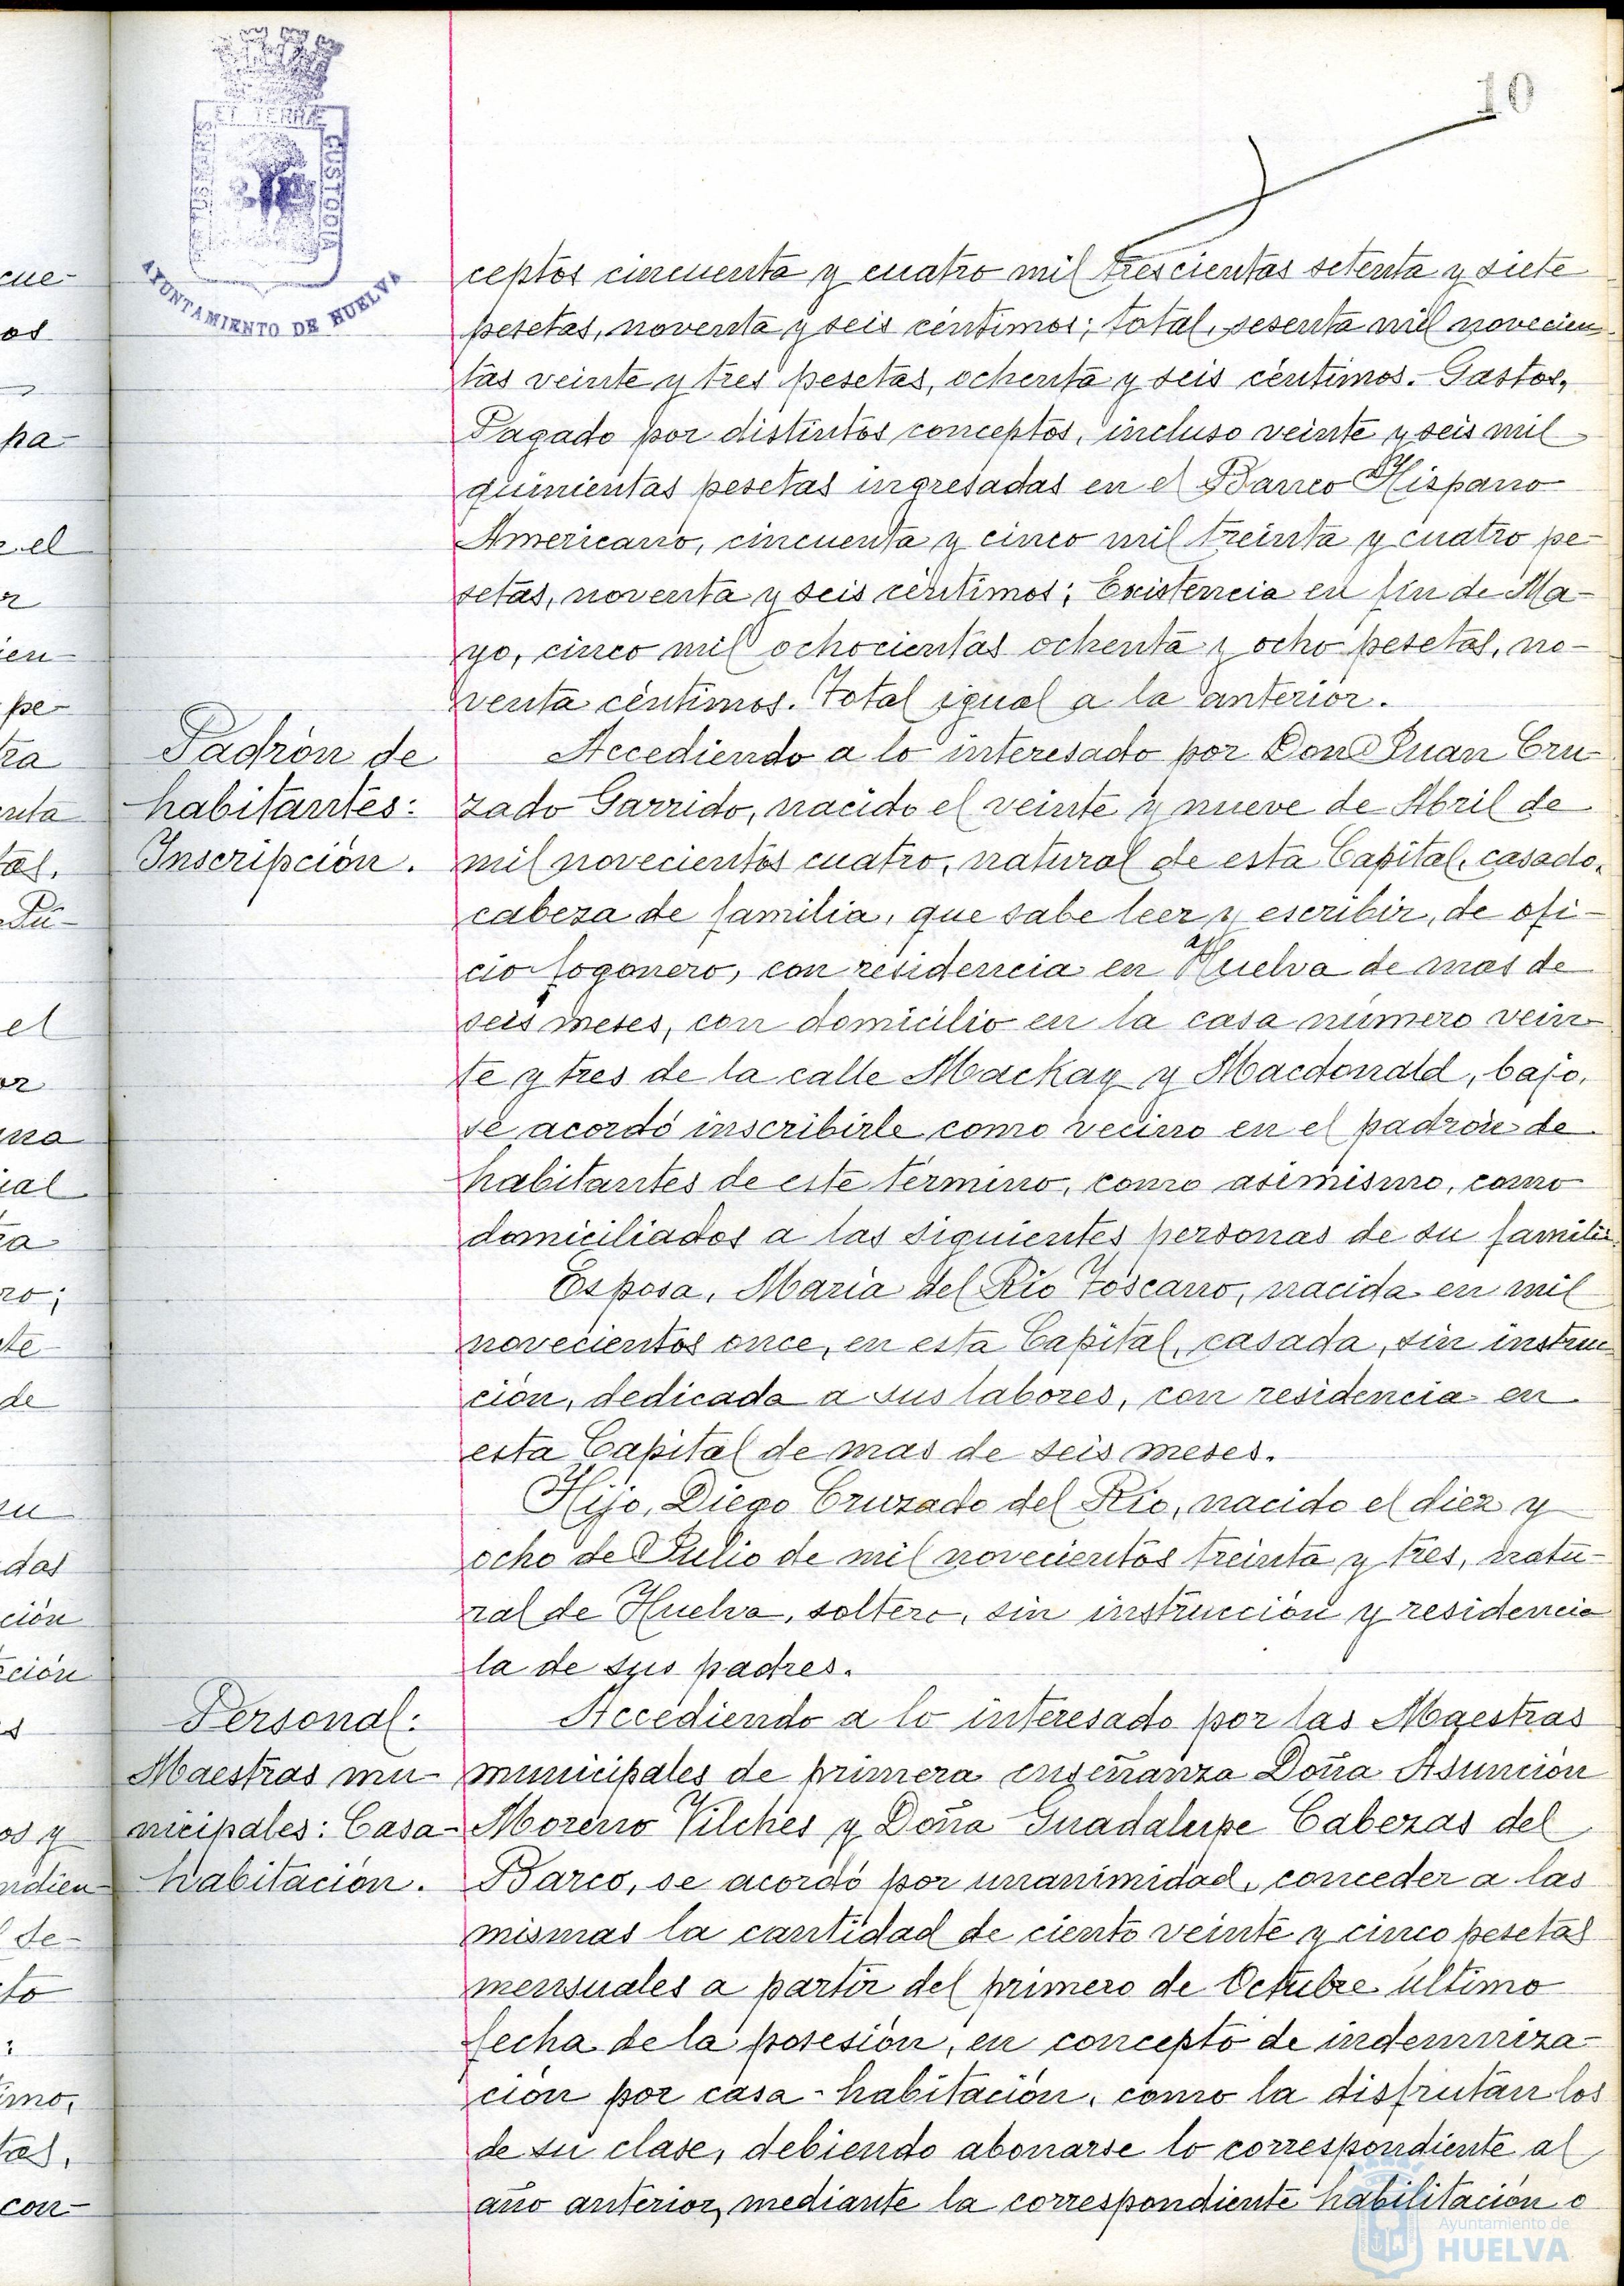 10
ET TERRÆ
CUSTODIA
AYUNTAMIENTO DE HUELVA
ceptos cincuenta y cuatro mil trescientas setenta y siete
pesetas, noventa y seis céntimos; total, sesenta mil novecien
tas veinte y tres pesetas, ochenta y seis céntimos.- Gastos,
Pagado por distintos conceptos, incluso veinte y seis mil
quinientas pesetas ingresadas en el Banco Hispano
Americano, cincuenta y cinco mil treinta y cuatro pe-
setas, noventa y seis céntimos; Existencia en fin de Ma-
yo, cinco mil ochocientas ochenta y ocho pesetas, no-
venta céntimos. Total igual a la anterior.
Padrón de
habitantes:
Inscripción.
Accediendo a lo interesado por Don Juan Cru-
zado Garrido, nacido el veinte y nueve de Abril de
mil novecientos cuatro, natural de esta Capital, casado,
cabeza de familia, que sabe leer y escribir, de ofi-
cio fogonero, con residencia en Huelva de mas de
seis meses, con domicilio en la casa número vein-
te y tres de la calle Mackay y Macdonald, bajo,
se acordó inscribirle como vecino en el padrón de
habitantes de este término, como asimismo, como
domiciliados a las siguientes personas de su familia.
Esposa, María del Río Toscano, nacida en mil
novecientos once, en esta Capital, casada, sin instruc
ción, dedicada a sus labores, con residencia en
esta Capital de mas de seis meses.
Hijo, Diego Cruzado del Río, nacido el diez y
ocho de Julio de mil novecientos treinta y tres, natu-
ral de Huelva, soltero, sin instrucción y residencia
la de sus padres.
Personal:
Maestras mu-
nicipales: Casa-
habitación.
Accediendo a lo interesado por las Maestras
municipales de primera enseñanza Doña Asunción
Moreno Vilches y Doña Guadalupe Cabezas del
Barco, se acordó por unanimidad, conceder a las
mismas la cantidad de ciento veinte y cinco pesetas
mensuales a partir del primero de Octubre último
fecha de la posesión, en concepto de indemniza-
ción por casa-habitación, como la disfrutan los
de su clase, debiendo abonarse lo correspondiente al
año anterior, mediante la correspondiente habilitación o
Ayuntamiento de
HUELVA